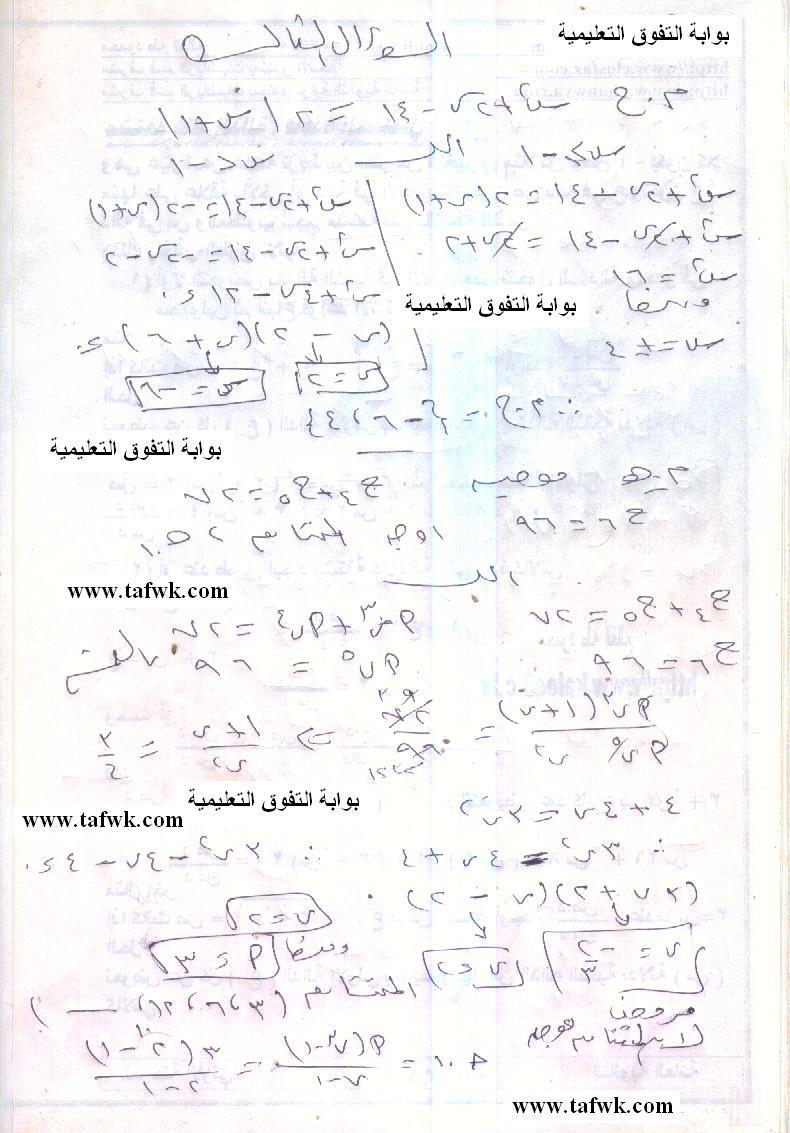 بوابة التفوق التعليمية
السؤال الثالث
م . ح س² + ٢س − ١٤ = ٢ |س + ١|
س ≥ −١ الحل س < −١
س² + ٢س − ١٤ = ٢(س + ١) س² + ٢س − ١٤ = −٢(س + ١)
س² + ٢س − ١٤ = ٢س + ٢ س² + ٢س − ١٤ = −٢س − ٢
س² = ١٦ س² + ٤س − ١٢ = ٠
ومنها
بوابة التفوق التعليمية
س = ± ٤ (س − ٢)(س + ٦) = ٠
س = ٢ س = −٦
∴ م . ح = {−٦ ، ٤}
بوابة التفوق التعليمية
م هـ موجبه ح٤ + ح٥ = ٧٢
ح٦ = ٩٦ اوجد المتتابعة ، حـ١٠
www.tafwk.com
الحل
ح٤ + ح٥ = ٧٢ أر³ + أر⁴ = ٧٢
ح٦ = ٩٦ أر⁵ = ٩٦ بالقسمة
أر³(١ + ر) / أر⁵ = ٧٢ / ٩٦ ⇐ (١ + ر) / ر² = ٣ / ٤
بوابة التفوق التعليمية
www.tafwk.com
٤ + ٤ر = ٣ر²
∴ ٣ر² = ٤ر + ٤ ∴ ٣ر² − ٤ر − ٤ = ٠
(٣ر + ٢)(ر − ٢)
ر = −٢/٣ ر = ٢ ر = ٢ ومنها أ = ٣
مرفوض لان المتتابعة موجبه المتتابعة (٣ ، ٦ ، ١٢ ، ...)
حـ١٠ = أ(ر^ن − ١) / (ر − ١) = ٣(٢^١٠ − ١) / (٢ − ١)
www.tafwk.com